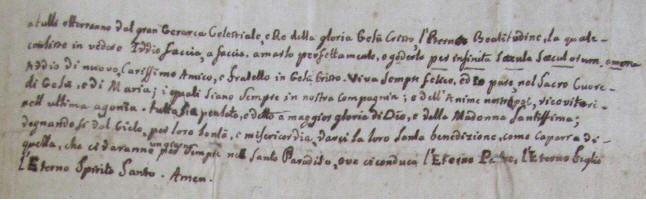 a tutti otterranno dal gran Gerarca Celestiale, e Re della gloria Gesù Cristo, l'Eterna Beatitudine, la quale
consiste in vedere Iddio faccia, a faccia, amarlo perfettamente, e goderlo per infinita sæcula sæculorum, amen
Addio di nuovo, Carissimo Amico, e fratello in Gesù Cristo. Viva sempre felice, ed io pure, nel Sacro Cuore
di Gesù, e di Maria; i quali siano sempre in nostra compagnia; e dell'Anime nostre poi, ricevitori
nell'ultima agonia. Tutto sia per detto, e detto a maggior gloria di Dio, e della Madonna Santissima;
degnandosi dal Cielo, per loro bontà, e misericordia, darci la loro santa benedizione, come caparra di
quella, che ci daranno per sempre nel Santo Paradiso, ove ci conduca l'Eterno Padre, l'Eterno Figlio
l'Eterno Spirito Santo. Amen.